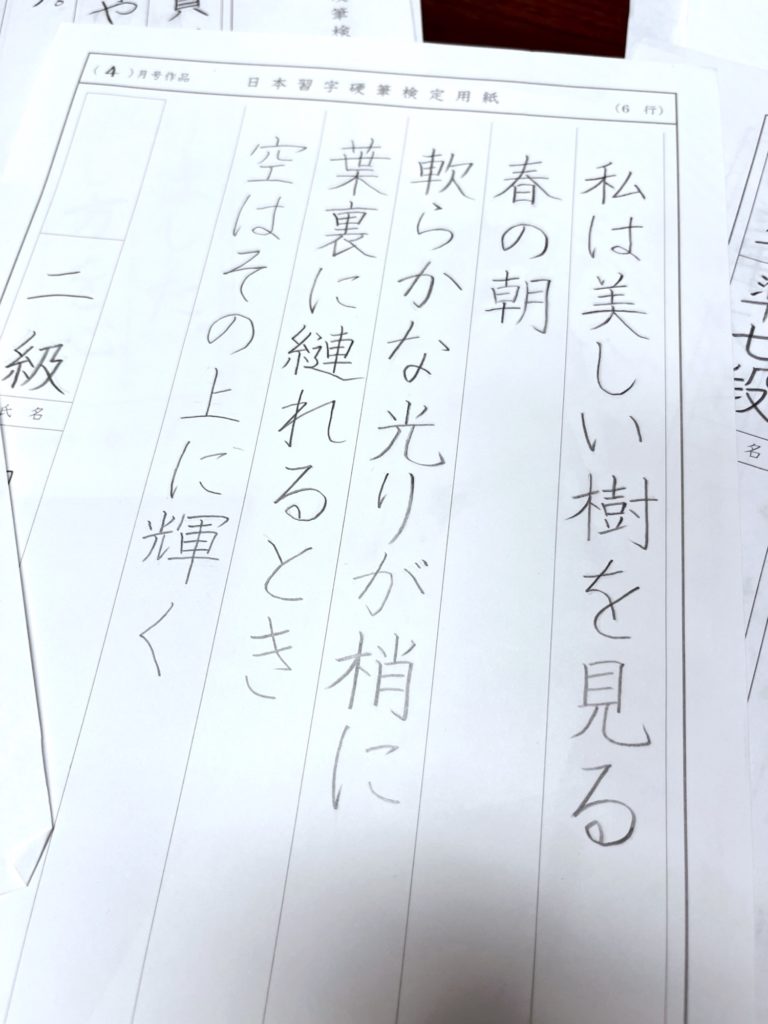 (4)月号作品 日本習字硬筆検定用紙 (6 行)
私は美しい樹を見る
春の朝
軟らかな光りが梢に
葉裏に縺れるとき
空はその上に輝く
二級
氏名
準七段
名
や
筆検